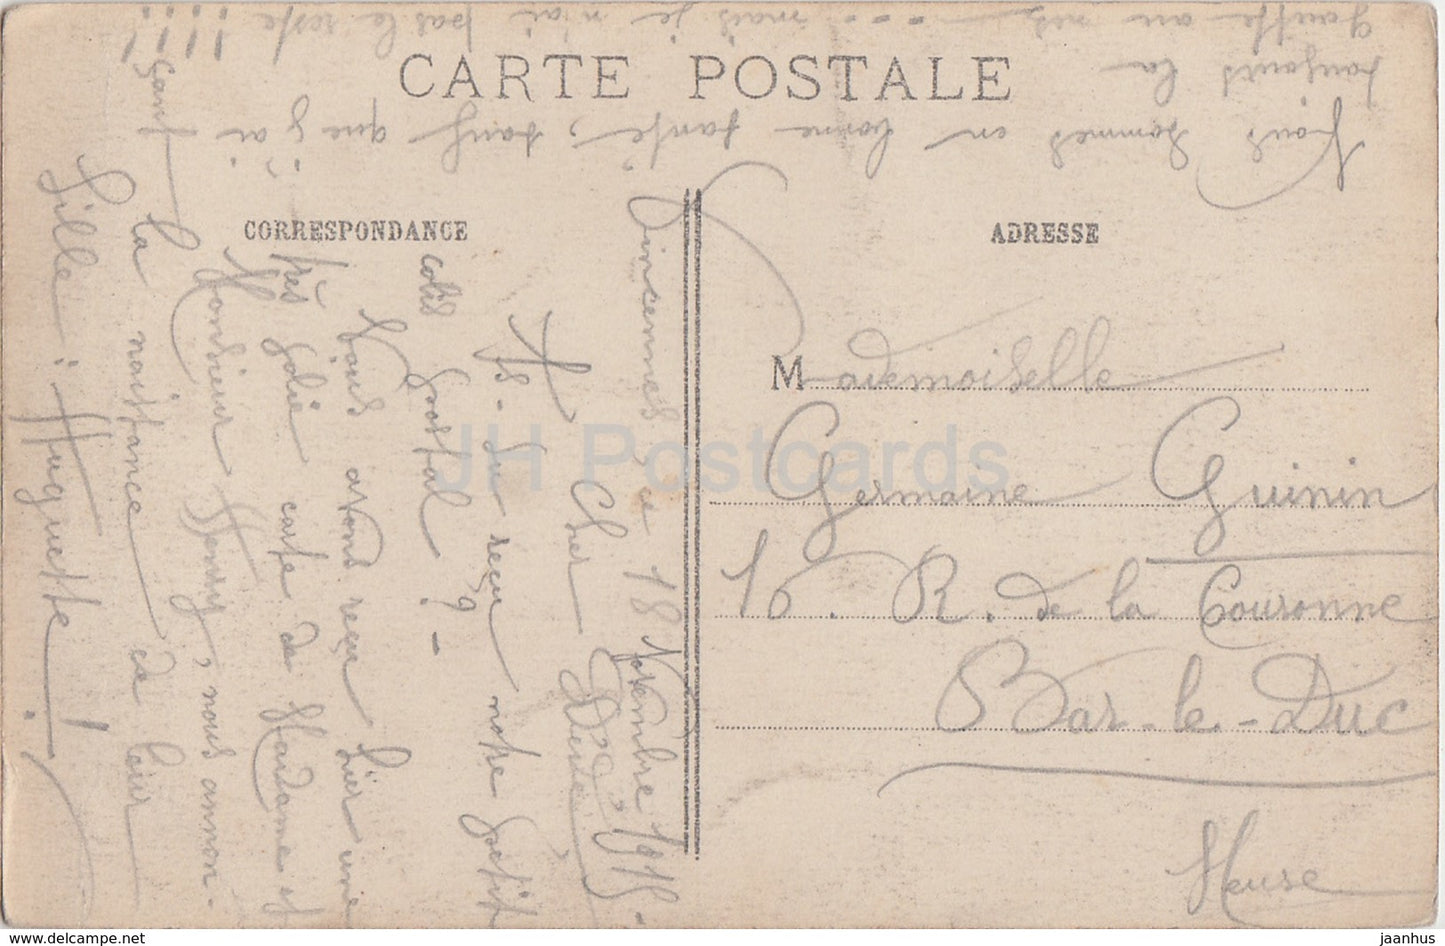 CARTE POSTALE
CORRESPONDANCE
ADRESSE
Vincennes, ce 18 Novembre 1915
Cher
As-tu reçu notre petit
colis postal ? -
Nous avons reçu hier une
très jolie carte de Madame et
Monsieur Henry, nous annon-
çant la naissance de leur
fille : Huguette !
Nous sommes en bonne santé, sauf que j'ai
toujours la
goutte au nez --- mais je n'ai pas le reste !!!!
Mademoiselle
Germaine Guinin
16. R. de la Couronne
Bar-le-Duc
Meuse
JH Postcards
www.delcampe.net
jaanhus